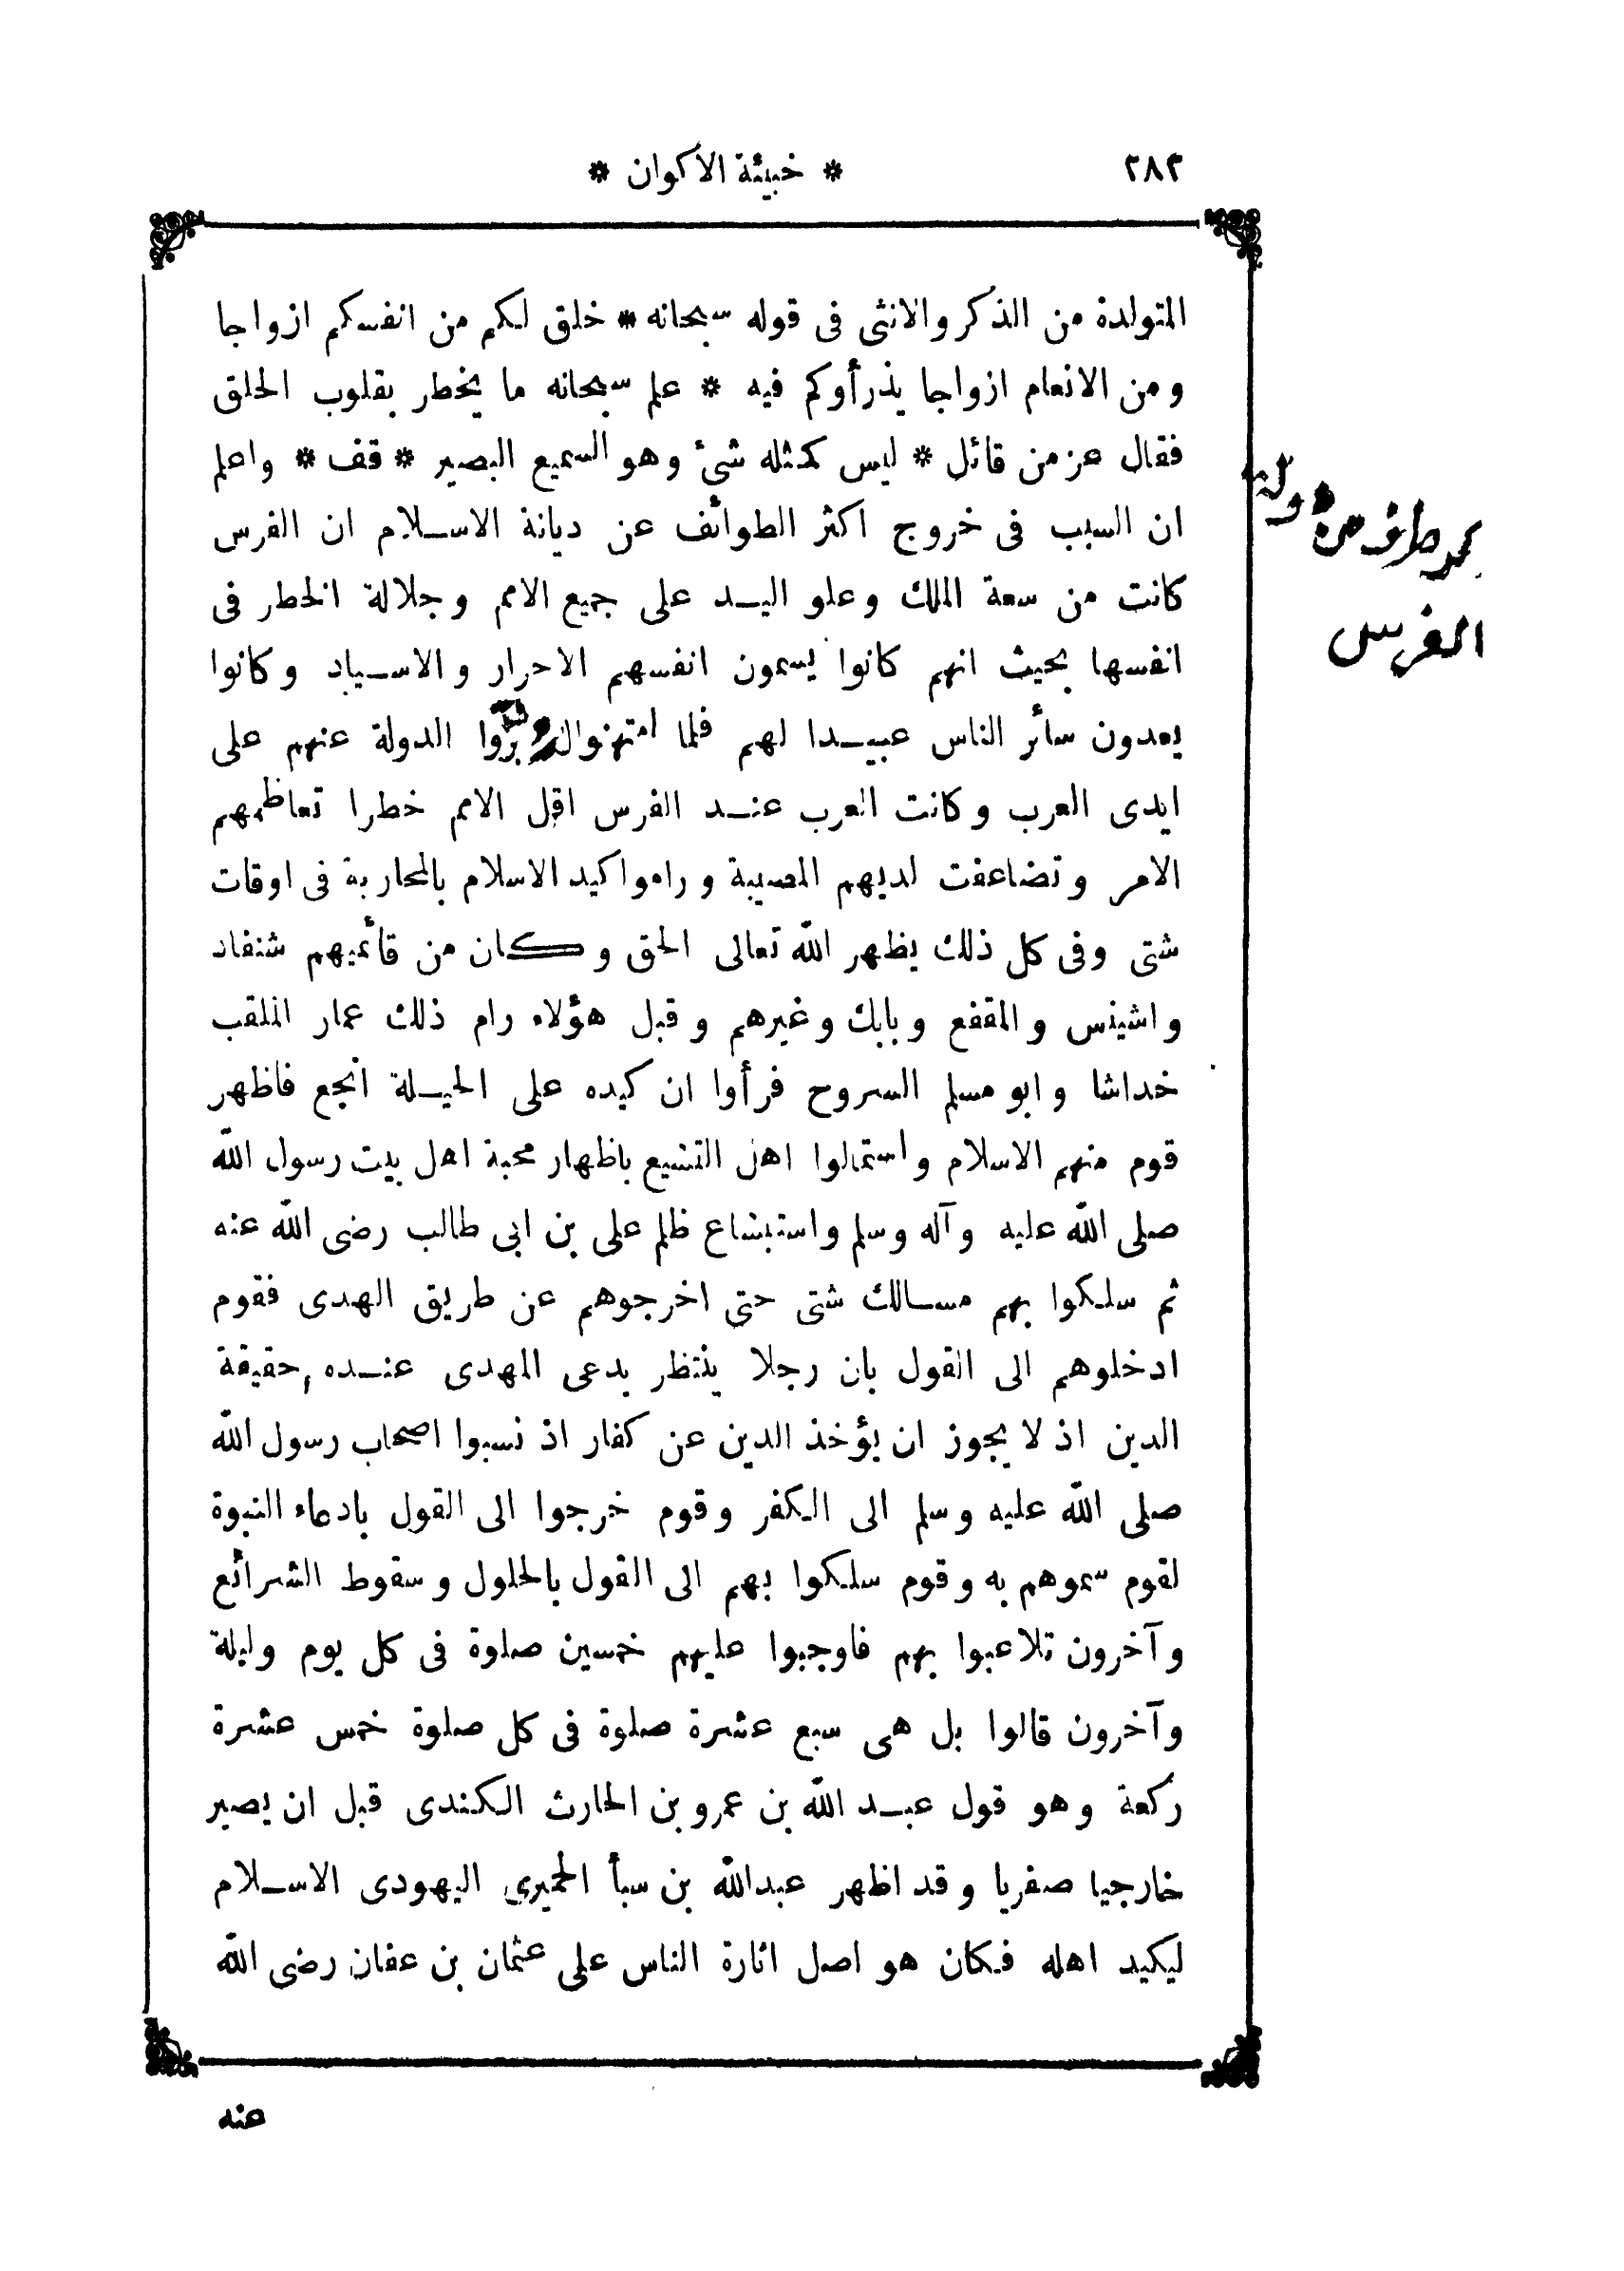 ٢٨٣
* خبيئة الاكوان *
المتولدة من الذكر والانثى فى قوله سبحانه * خلق لكم من انفسكم ازواجا
ومن الانعام ازواجا يذرأوكم فيه * علم سبحانه ما يخطر بقلوب الخلق
فقال عز من قائل * ليس كمثله شئ وهو السميع البصير * قف * واعلم
ان السبب فى خروج اكثر الطوائف عن ديانة الاسلام ان الفرس
كانت من سعة الملك وعلو اليد على جميع الامم وجلالة الخطر فى
انفسها بحيث انهم كانوا يسمون انفسهم الاحرار والاسياد وكانوا
يعدون سائر الناس عبيدا لهم فلما امتهنوا الدولة عنهم على
ايدى العرب وكانت العرب عند الفرس اقل الامم خطرا تعاظمهم
الامر وتضاعفت لديهم المصيبة وراموا كيد الاسلام بالمحاربة فى اوقات
شتى وفى كل ذلك يظهر الله تعالى الحق وكان من قائميهم شنفاد
واشينس والمقفع وبابك وغيرهم وقبل هؤلاء رام ذلك عمار الملقب
خداشا وابو مسلم السروح فرأوا ان كيده على الحيلة انجع فاظهر
قوم منهم الاسلام واستمالوا اهل التشيع باظهار محبة اهل بيت رسول الله
صلى الله عليه وآله وسلم واستبشاع ظلم على بن ابى طالب رضى الله عنه
ثم سلكوا بهم مسالك شتى حتى اخرجوهم عن طريق الهدى فقوم
ادخلوهم الى القول بان رجلا ينتظر يدعى المهدى عنده حقيقة
الدين اذ لا يجوز ان يؤخذ الدين عن كفار اذ نسبوا اصحاب رسول الله
صلى الله عليه وسلم الى الكفر وقوم خرجوا الى القول بادعاء النبوة
لقوم سموهم به وقوم سلكوا بهم الى القول بالحلول وسقوط الشرائع
وآخرون تلاعبوا بهم فاوجبوا عليهم خمسين صلوة فى كل يوم وليلة
وآخرون قالوا بل هى سبع عشرة صلوة فى كل صلوة خمس عشرة
ركعة وهو قول عبد الله بن عمرو بن الحارث الكندى قبل ان يصير
خارجيا صفريا وقد اظهر عبدالله بن سبأ الحميرى اليهودى الاسلام
ليكيد اهله فكان هو اصل اثارة الناس على عثمان بن عفان رضى الله
عنه
الفرس